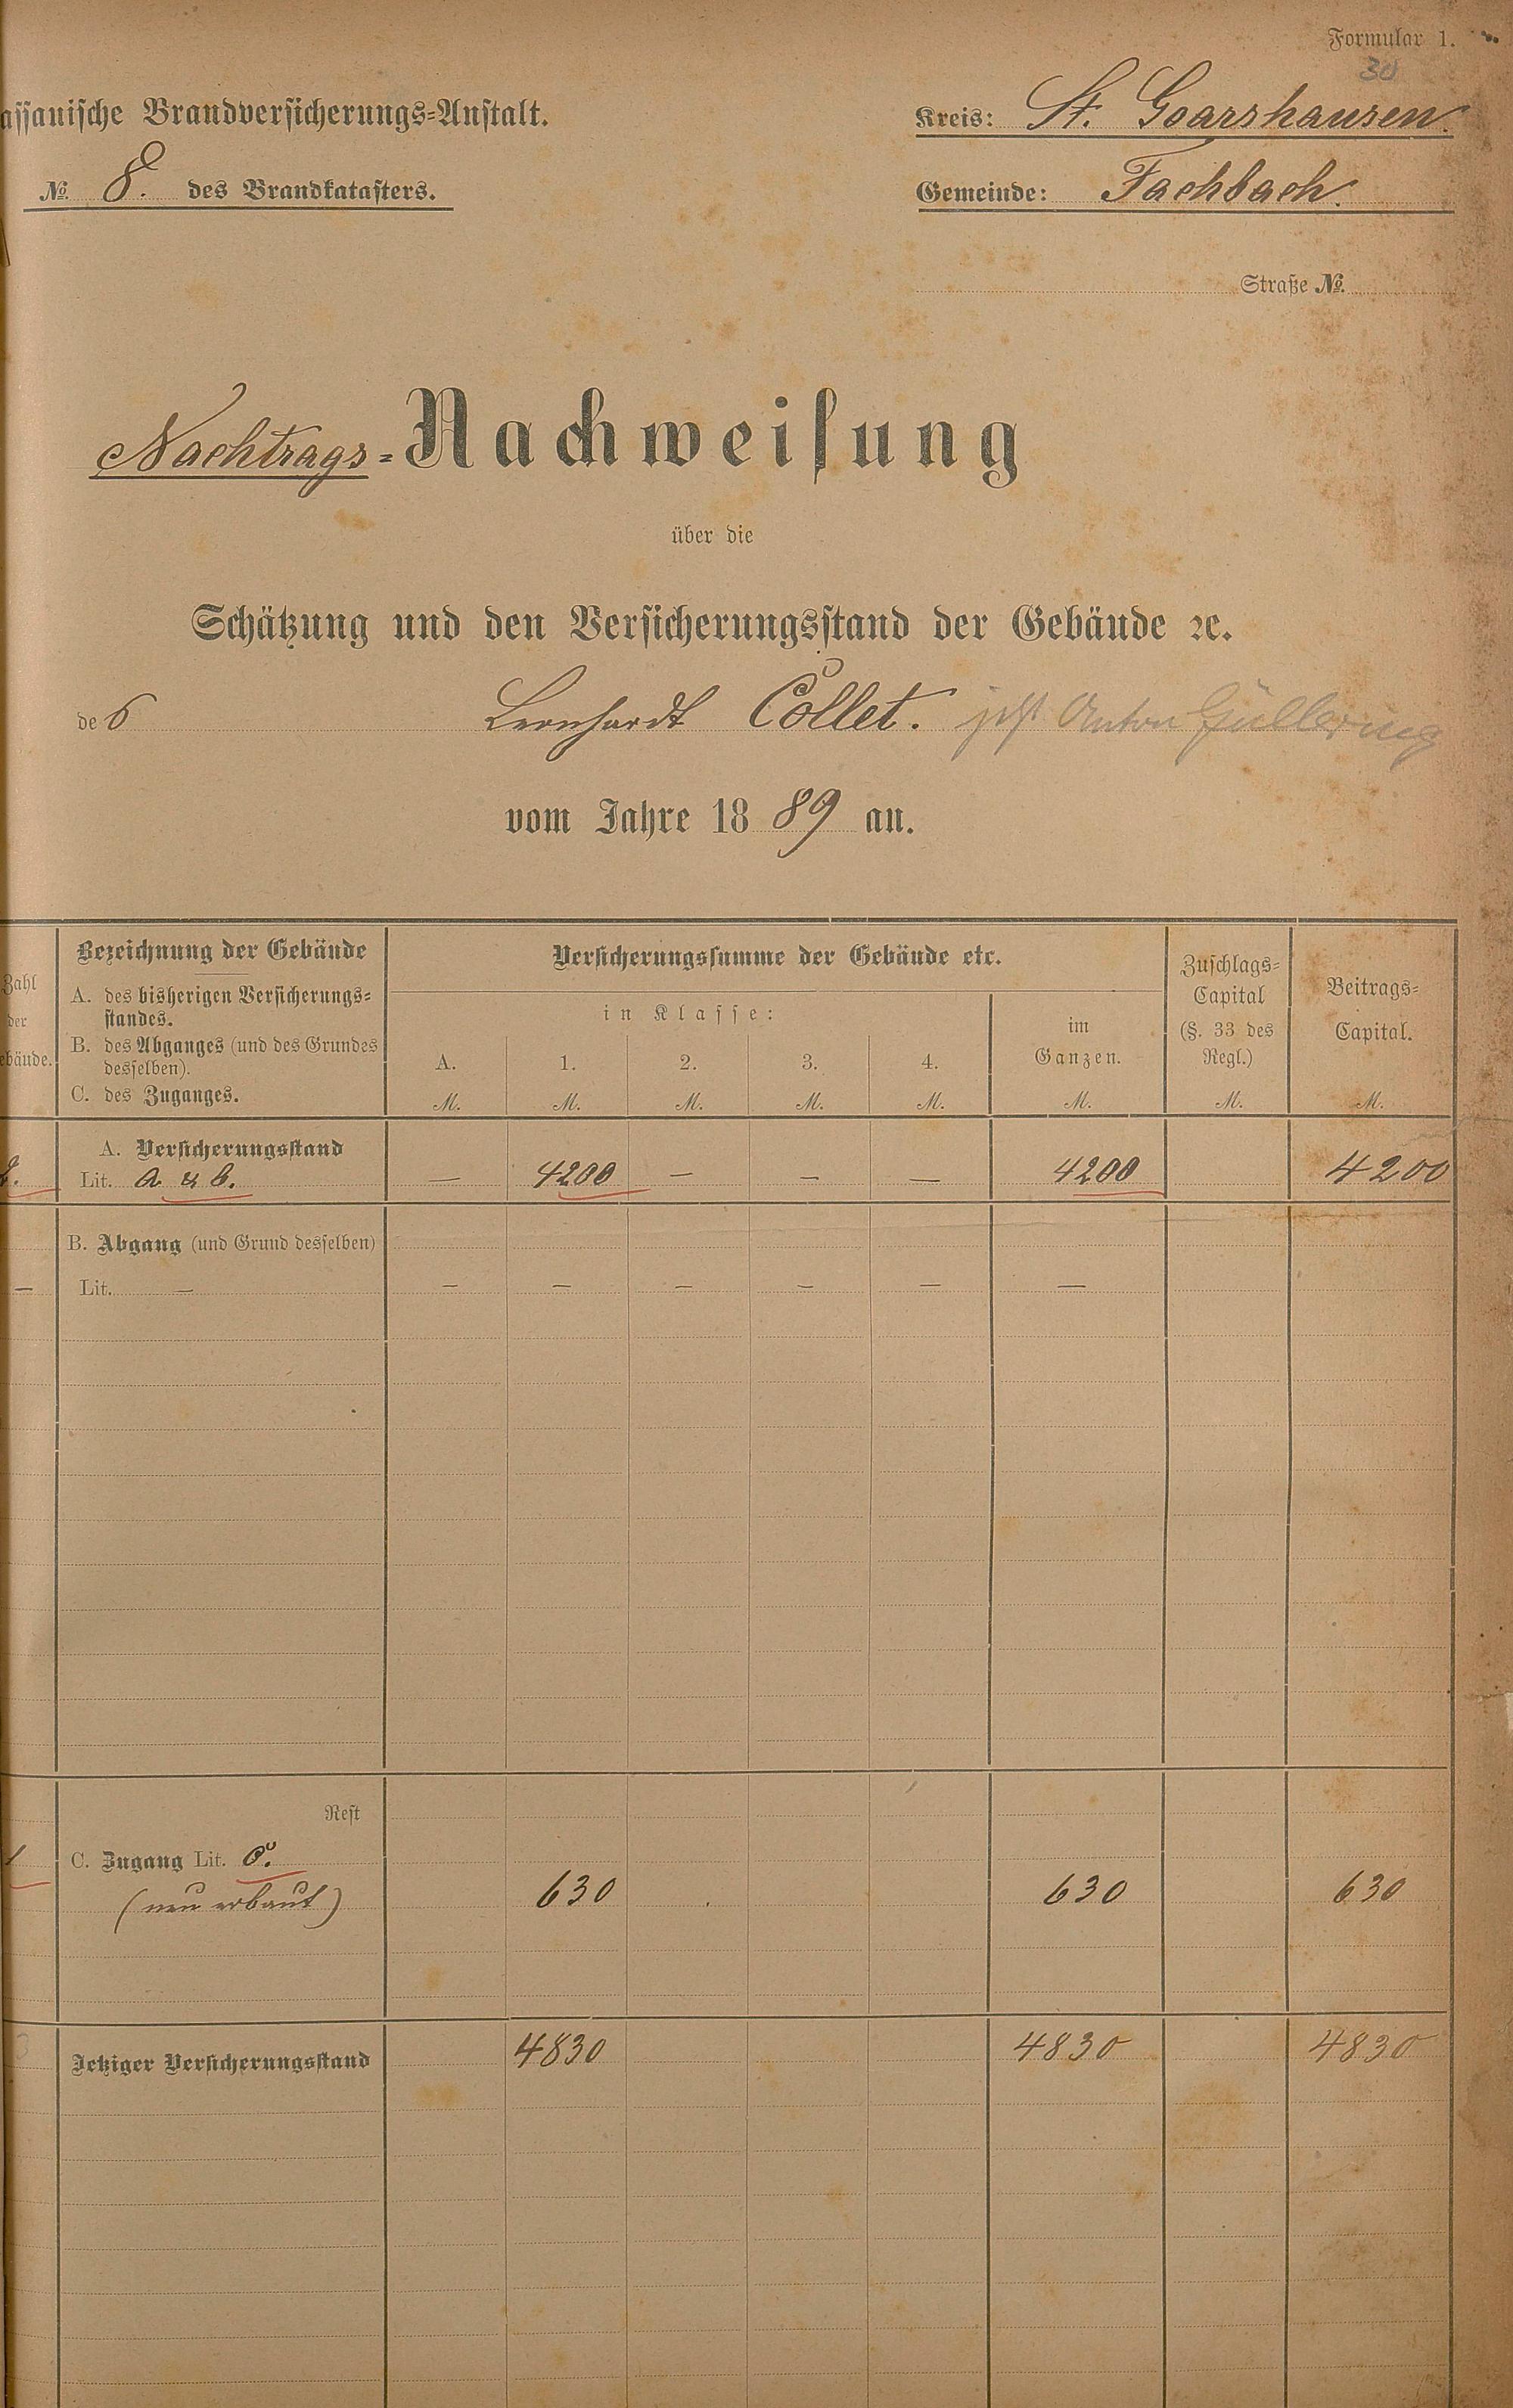 Formular 1.
30
assauische Brandversicherungs-Anstalt.
Kreis: St. Goarshausen.
No. 8. des Brandkatasters.
Gemeinde: Fachbach.
Straße No.
Nachtrags-Nachweisung
über die
Schätzung und den Versicherungsstand der Gebäude ꝛc.
des Leonhardt Collet. jetzt Anton
vom Jahre 1889 an.
Zahl
der
ebäude.
Bezeichnung der Gebäude
A. des bisherigen Versicherungs-
standes.
B. des Abganges (und des Grundes
desselben).
C. des Zuganges.
Versicherungssumme der Gebäude etc.
in Klasse:
A. 1. 2. 3. 4.
M. M. M. M. M.
im
Ganzen.
M.
Zuschlags-
Capital
(§. 33 des
Regl.)
M.
Beitrags-
Capital.
M.
A. Versicherungsstand
2. Lit. a & b. — 4200 — — — 4200 4200
B. Abgang (und Grund desselben)
— Lit. — — — — — — —
Rest
1 C. Zugang Lit. c.
(neu erbaut) 630 630 630
3 Jetziger Versicherungsstand 4830 4830 4830